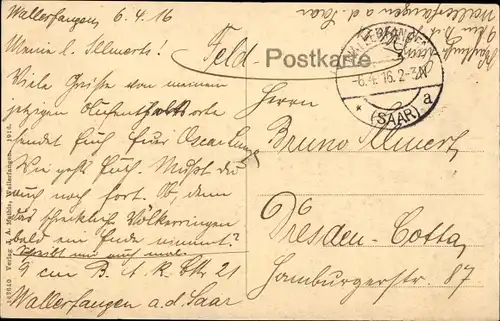 Wallerfangen, 6.4.16
Meine l. Illmerts!
Viele Grüsse von meinem
jetzigen Aufenthaltsorte
sendet Euch Euer Oscar
Wie gehts Euch. Mußt du
auch noch fort. Ob, denn
das schreckliche Völkerringen
bald ein Ende nimmt?
Schreibt mir auch mal.
9 cm B. 21
Wallerfangen a.d. Saar
Feld-
Postkarte
WALLERFANGEN
-6.4.16.2-3N
* (SAAR) a
Wallerfangen a.d. Saar
Herrn
Bruno Illmert
Dresden-Cotta
Hamburgerstr. 87
Verlag J. A. Mühle, Wallerfangen. 1916.